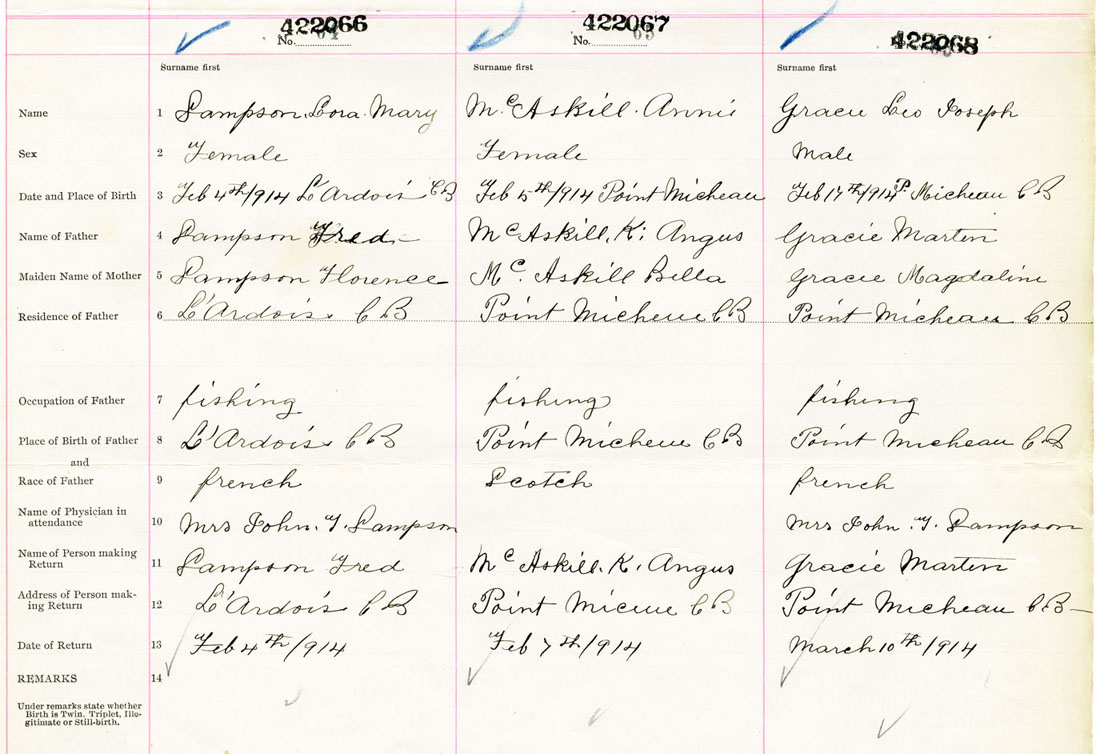 422066 422067 422068
No. No.
Surname first Surname first Surname first
Name 1 Sampson Lora Mary McAskill Annie Gracie Leo Joseph
Sex 2 Female Female Male
Date and Place of Birth 3 Feb 4th/914 L'Ardois CB Feb 5th/914 Point Micheau Feb 17th/914 P. Micheau CB
Name of Father 4 Sampson Fred McAskill, K; Angus Gracie Martin
Maiden Name of Mother 5 Sampson Florence McAskill Bella Gracie Magdaline
Residence of Father 6 L'Ardois CB Point Micheue CB Point Micheau CB
Occupation of Father 7 fishing fishing fishing
Place of Birth of Father 8 L'Ardois CB Point Micheue CB Point Micheau CB
and
Race of Father 9 french Scotch french
Name of Physician in
attendance 10 Mrs John. T. Sampson Mrs John. T. Sampson
Name of Person making
Return 11 Sampson Fred McAskill. K. Angus Gracie Martin
Address of Person mak-
ing Return 12 L'Ardois CB Point Micuue CB Point Micheau CB
Date of Return 13 Feb 4th/914 Feb 7th/914 March 10th/914
REMARKS 14
Under remarks state whether
Birth is Twin, Triplet, Ille-
gitimate or Still-birth.